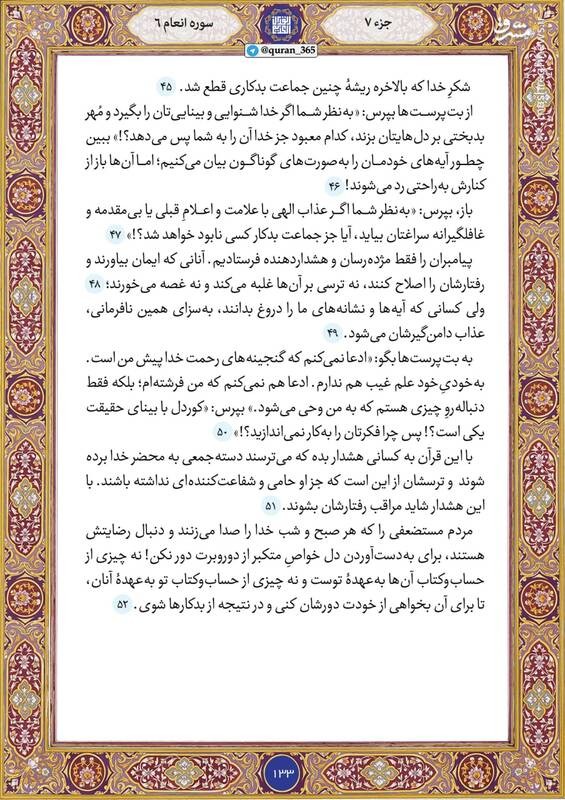 جزء ۷
سوره انعام ۶
@quran_365
مشرق
شکرِ خدا که بالاخره ریشهٔ چنین جماعت بدکاری قطع شد. ۴۵
از بت‌پرست‌ها بپرس: «به‌نظر شما اگر خدا شنوایی و بینایی‌تان را بگیرد و مُهر
بدبختی بر دل‌هایتان بزند، کدام معبود جز خدا آن را به شما پس می‌دهد؟!» ببین
چطور آیه‌های خودمان را به‌صورت‌های گوناگون بیان می‌کنیم؛ اما آن‌ها باز از
کنارش به‌راحتی رد می‌شوند! ۴۶
باز، بپرس: «به‌نظر شما اگر عذاب الهی با علامت و اعلامِ قبلی یا بی‌مقدمه و
غافلگیرانه سراغتان بیاید، آیا جز جماعت بدکار کسی نابود خواهد شد؟!» ۴۷
پیامبران را فقط مژده‌رسان و هشداردهنده فرستادیم. آنانی که ایمان بیاورند و
رفتارشان را اصلاح کنند، نه ترسی بر آن‌ها غلبه می‌کند و نه غصه می‌خورند؛ ۴۸
ولی کسانی که آیه‌ها و نشانه‌های ما را دروغ بدانند، به‌سزای همین نافرمانی،
عذاب دامن‌گیرشان می‌شود. ۴۹
به بت‌پرست‌ها بگو: «ادعا نمی‌کنم که گنجینه‌های رحمت خدا پیش من است.
به‌خودیِ‌خود علم غیب هم ندارم. ادعا هم نمی‌کنم که من فرشته‌ام؛ بلکه فقط
دنباله‌روِ چیزی هستم که به من وحی می‌شود.» بپرس: «کوردل با بینای حقیقت
یکی است؟! پس چرا فکرتان را به‌کار نمی‌اندازید؟!» ۵۰
با این قرآن به کسانی هشدار بده که می‌ترسند دسته‌جمعی به محضر خدا برده
شوند و ترسشان از این است که جز او حامی و شفاعت‌کننده‌ای نداشته باشند. با
این هشدار شاید مراقب رفتارشان بشوند. ۵۱
مردم مستضعفی را که هر صبح و شب خدا را صدا می‌زنند و دنبال رضایتش
هستند، برای به‌دست‌آوردن دل خواصِ متکبر از دوروبرت دور نکن! نه چیزی از
حساب‌وکتاب آن‌ها به‌عهدهٔ توست و نه چیزی از حساب‌وکتاب تو به‌عهدهٔ آنان،
تا برای آن بخواهی از خودت دورشان کنی و در نتیجه از بدکارها شوی. ۵۲
۱۳۳